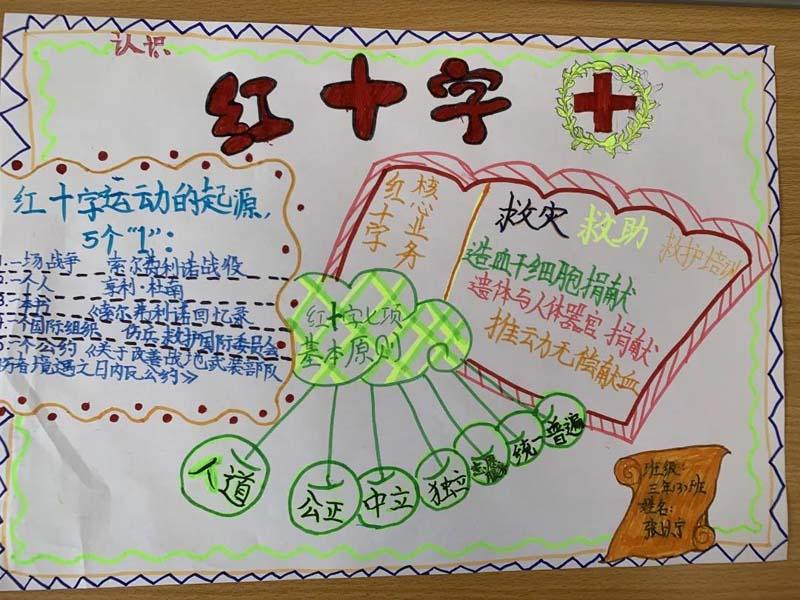 认识
红十字
红十字运动的起源,
5个“1”:
1.一场战争 索尔弗利诺战役
2.一个人 亨利·杜南
3.一本书 《索尔弗利诺回忆录
4.一个国际组织 伤兵救护国际委员会
5.一个公约《关于改善战地武装部队
伤者境遇之日内瓦公约》
红十字
核心业务
救灾 救助 救护培训
造血干细胞捐献
遗体与人体器官 捐献
推动无偿献血
红十字七项
基本原则
人道
公正
中立
独立
志愿
服务
统一
普遍
班级:
三年(3)班
姓名:
张宁